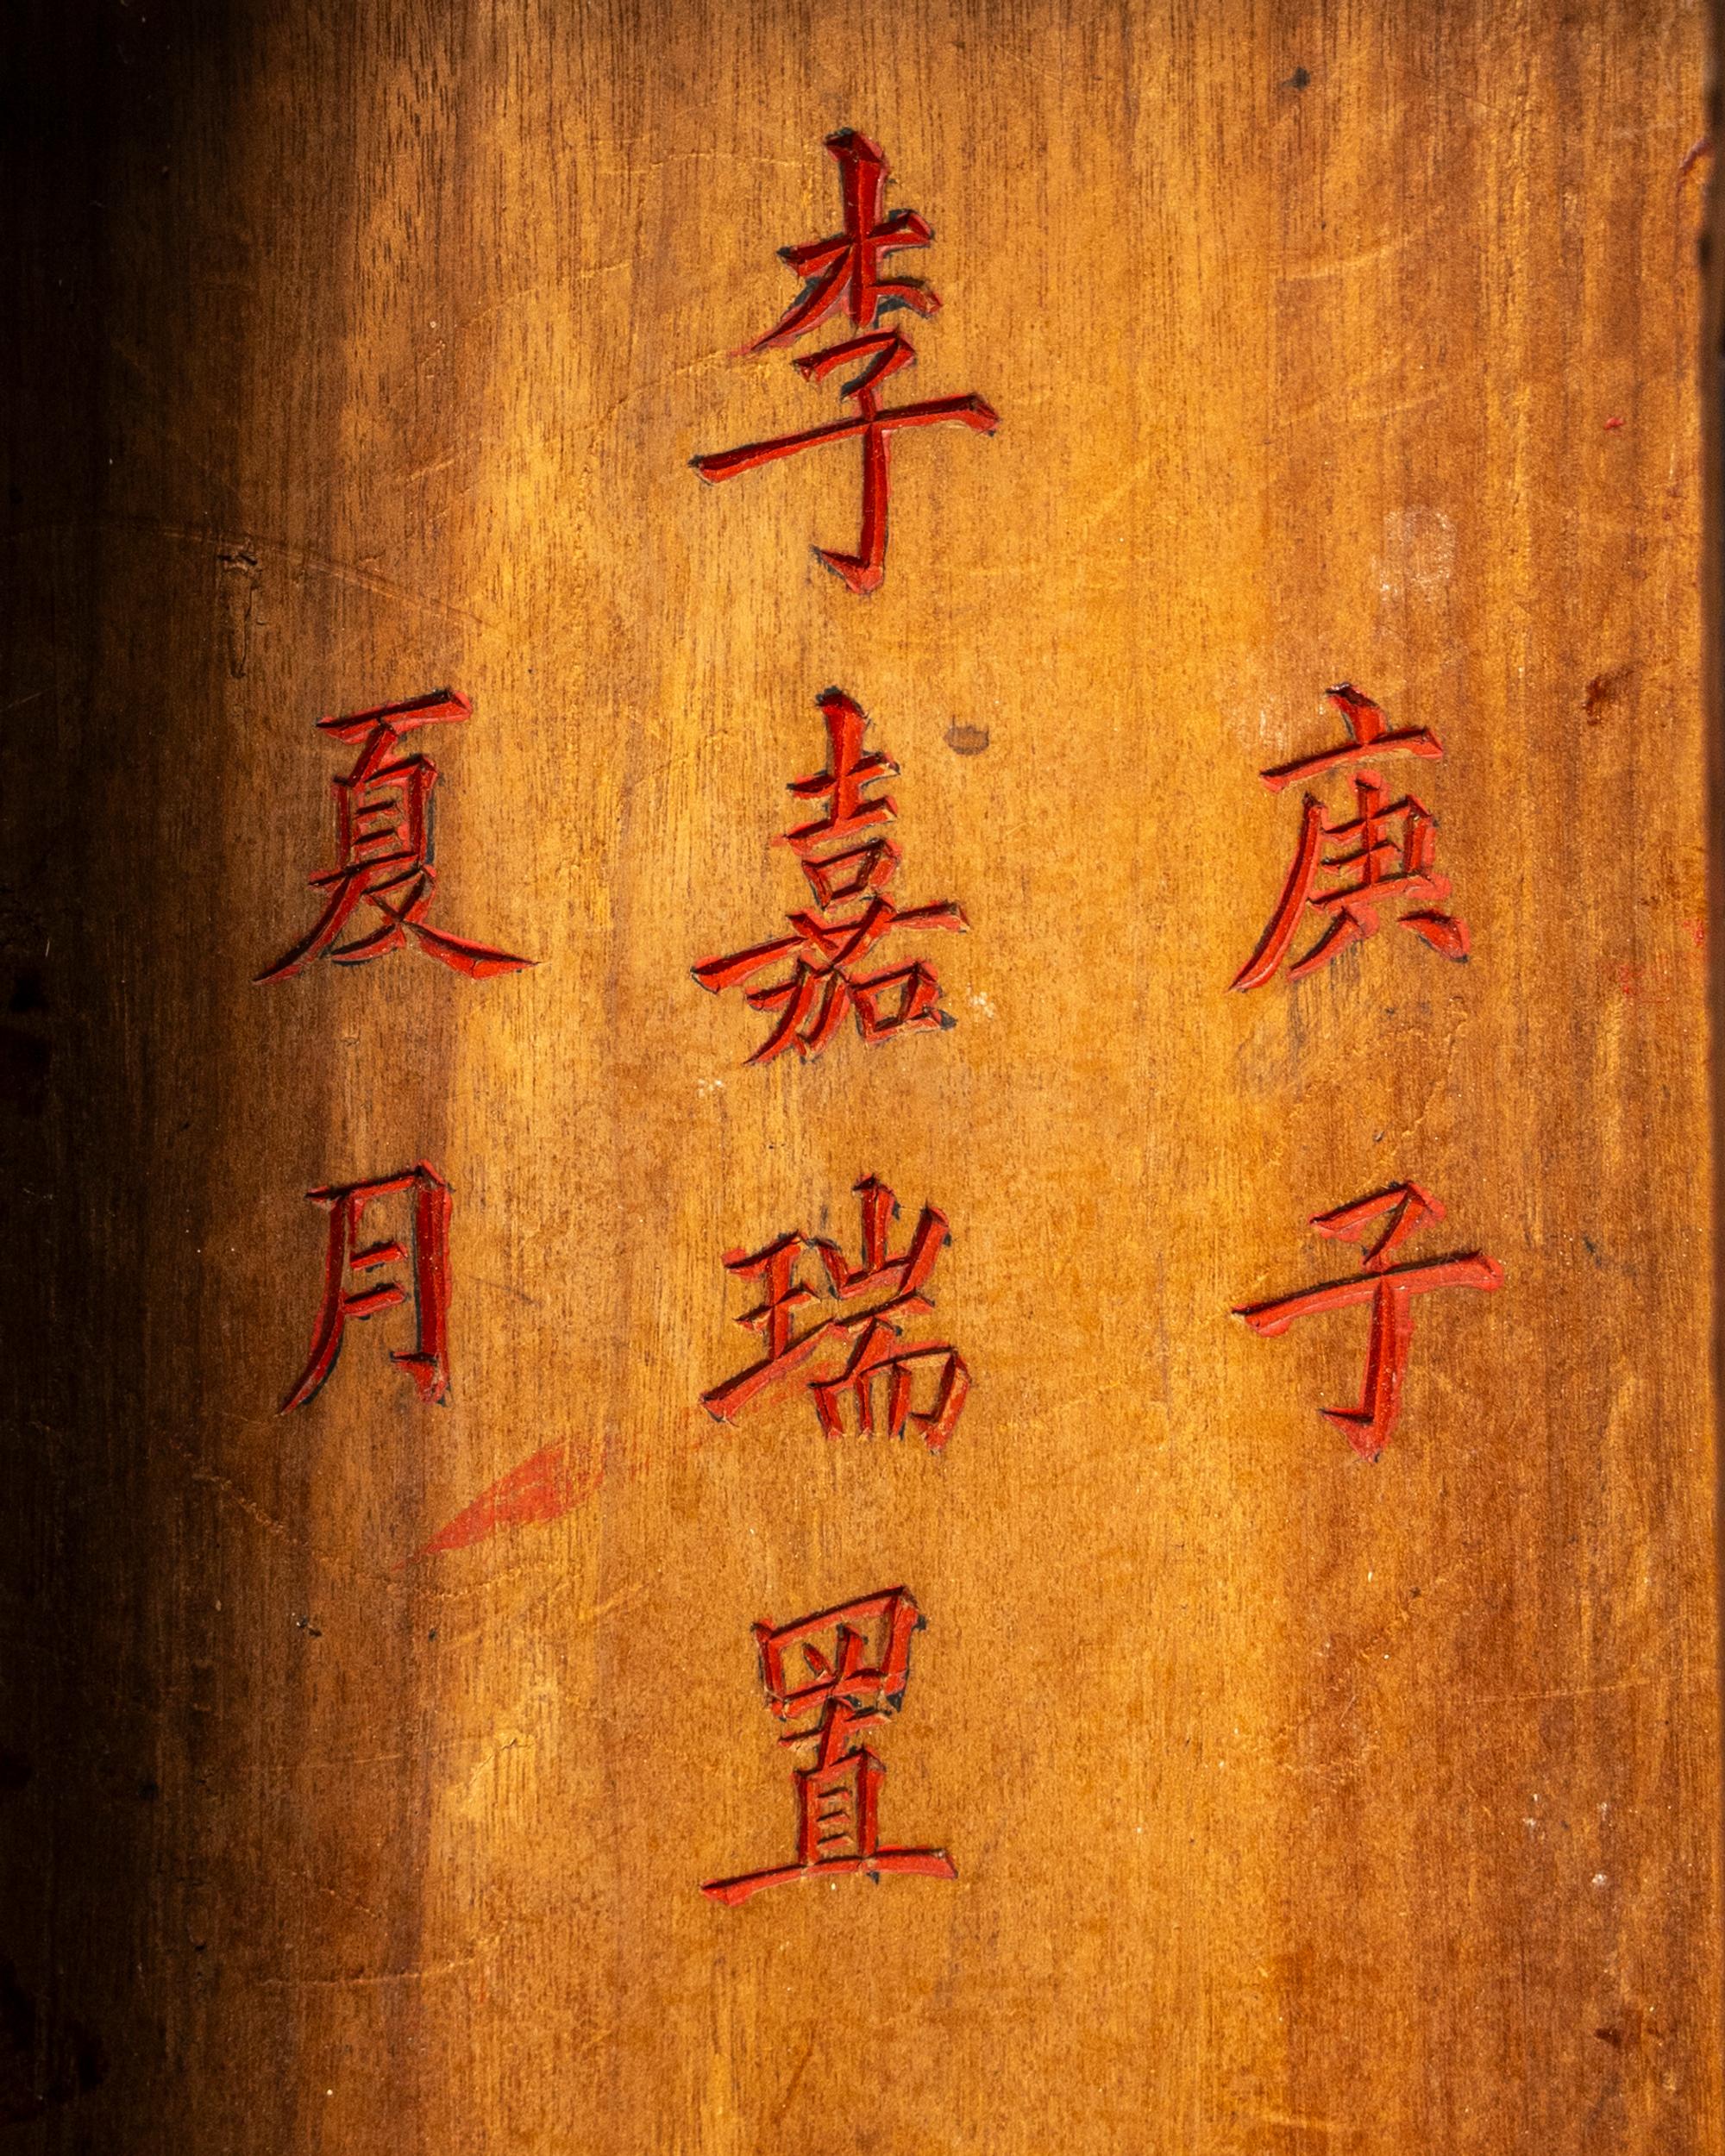 庚子
李嘉瑞置
夏月